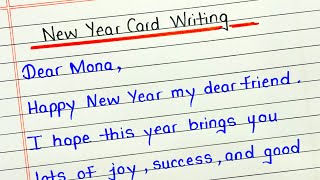 New Year Card Writing
Dear Mona,
Happy New Year my dear friend.
I hope this year brings you
lots of joy, success, and good